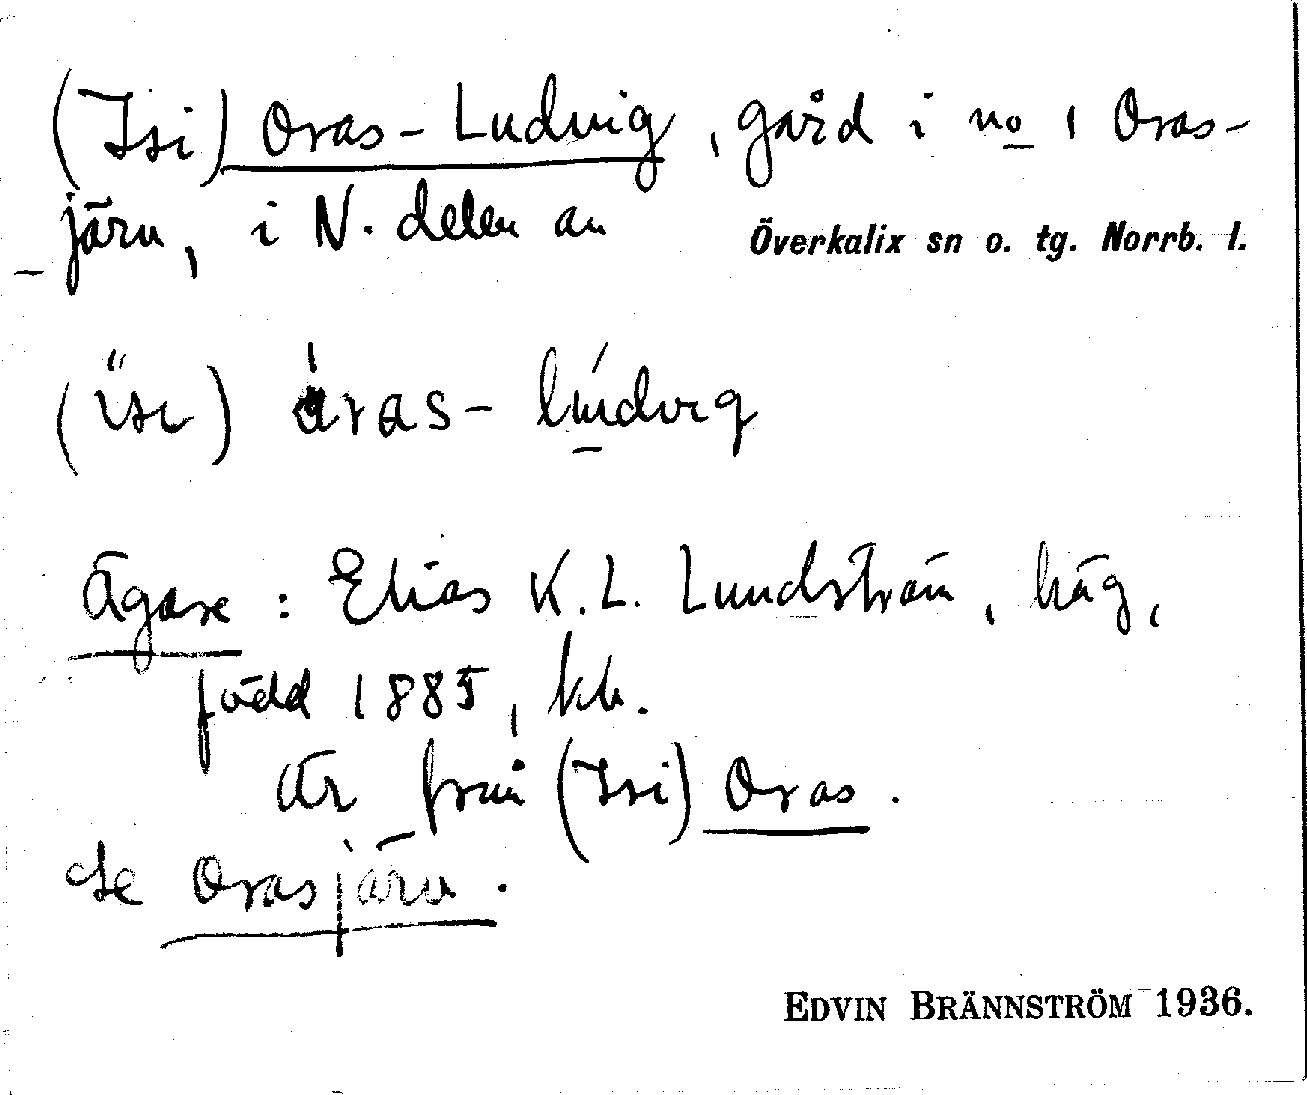 (Isi) Oras-Ludvig, gård i no 1 Oras-
järv, i N. delen av Överkalix sn o. tg. Norrb. l.
(ïsı) áras- lúdvıg
Ägare: Elias K. L. Lundström, häg,
född 1885, kb.
Är från (Isi) Oras.
Se Orasjärv.
EDVIN BRÄNNSTRÖM 1936.